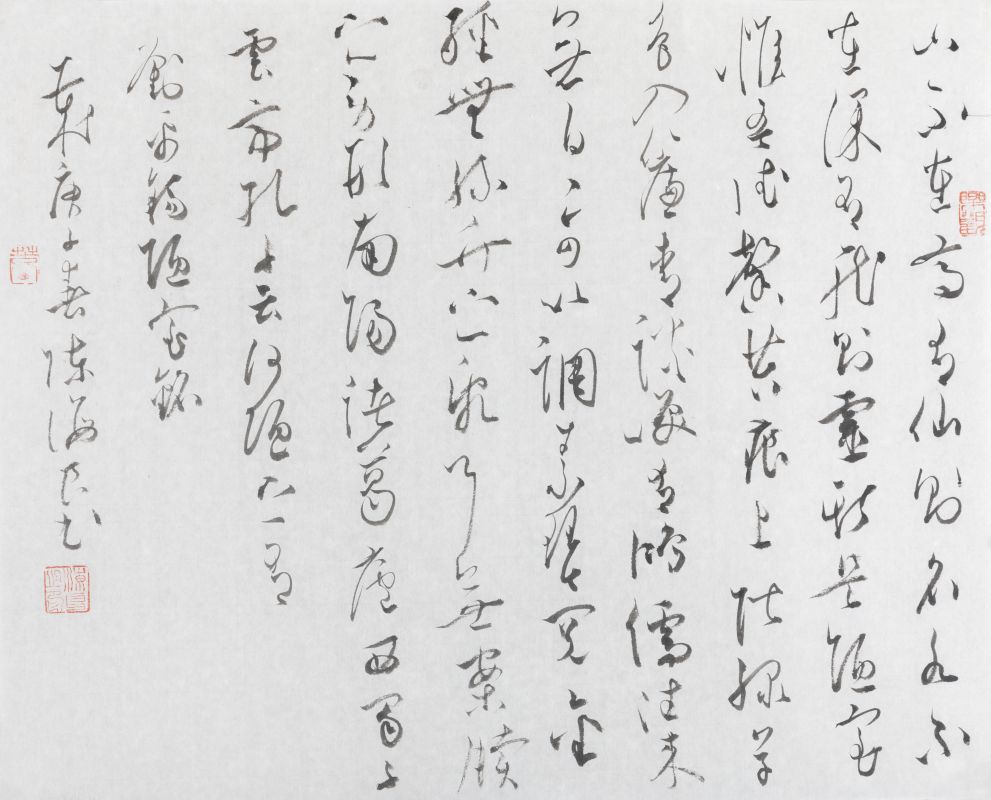 山不在高有仙則名水不
在深有龍則靈斯是陋室
惟吾德馨苔痕上階綠草
色入簾青談笑有鴻儒往来
無白丁可以調素琴閱金
經無絲竹之亂耳無案牘
之勞形南陽諸葛廬西蜀子
雲亭孔子云何陋之有
劉禹錫陋室銘
庚子春陳海良書